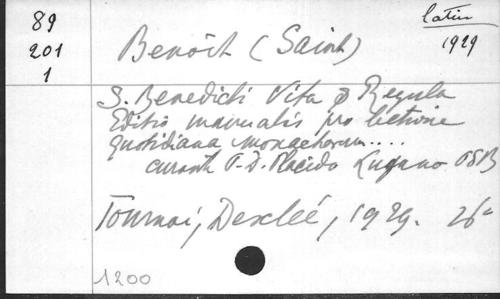 89
201
1
latin
1929
Benoît (Saint)
S. Benedicti Vita & Regula
Editio manualis pro lectione
quotidiana monachorum....
curante P. D. Placido Lugano OSB
Tournai, Desclée, 1929. 26c
1200